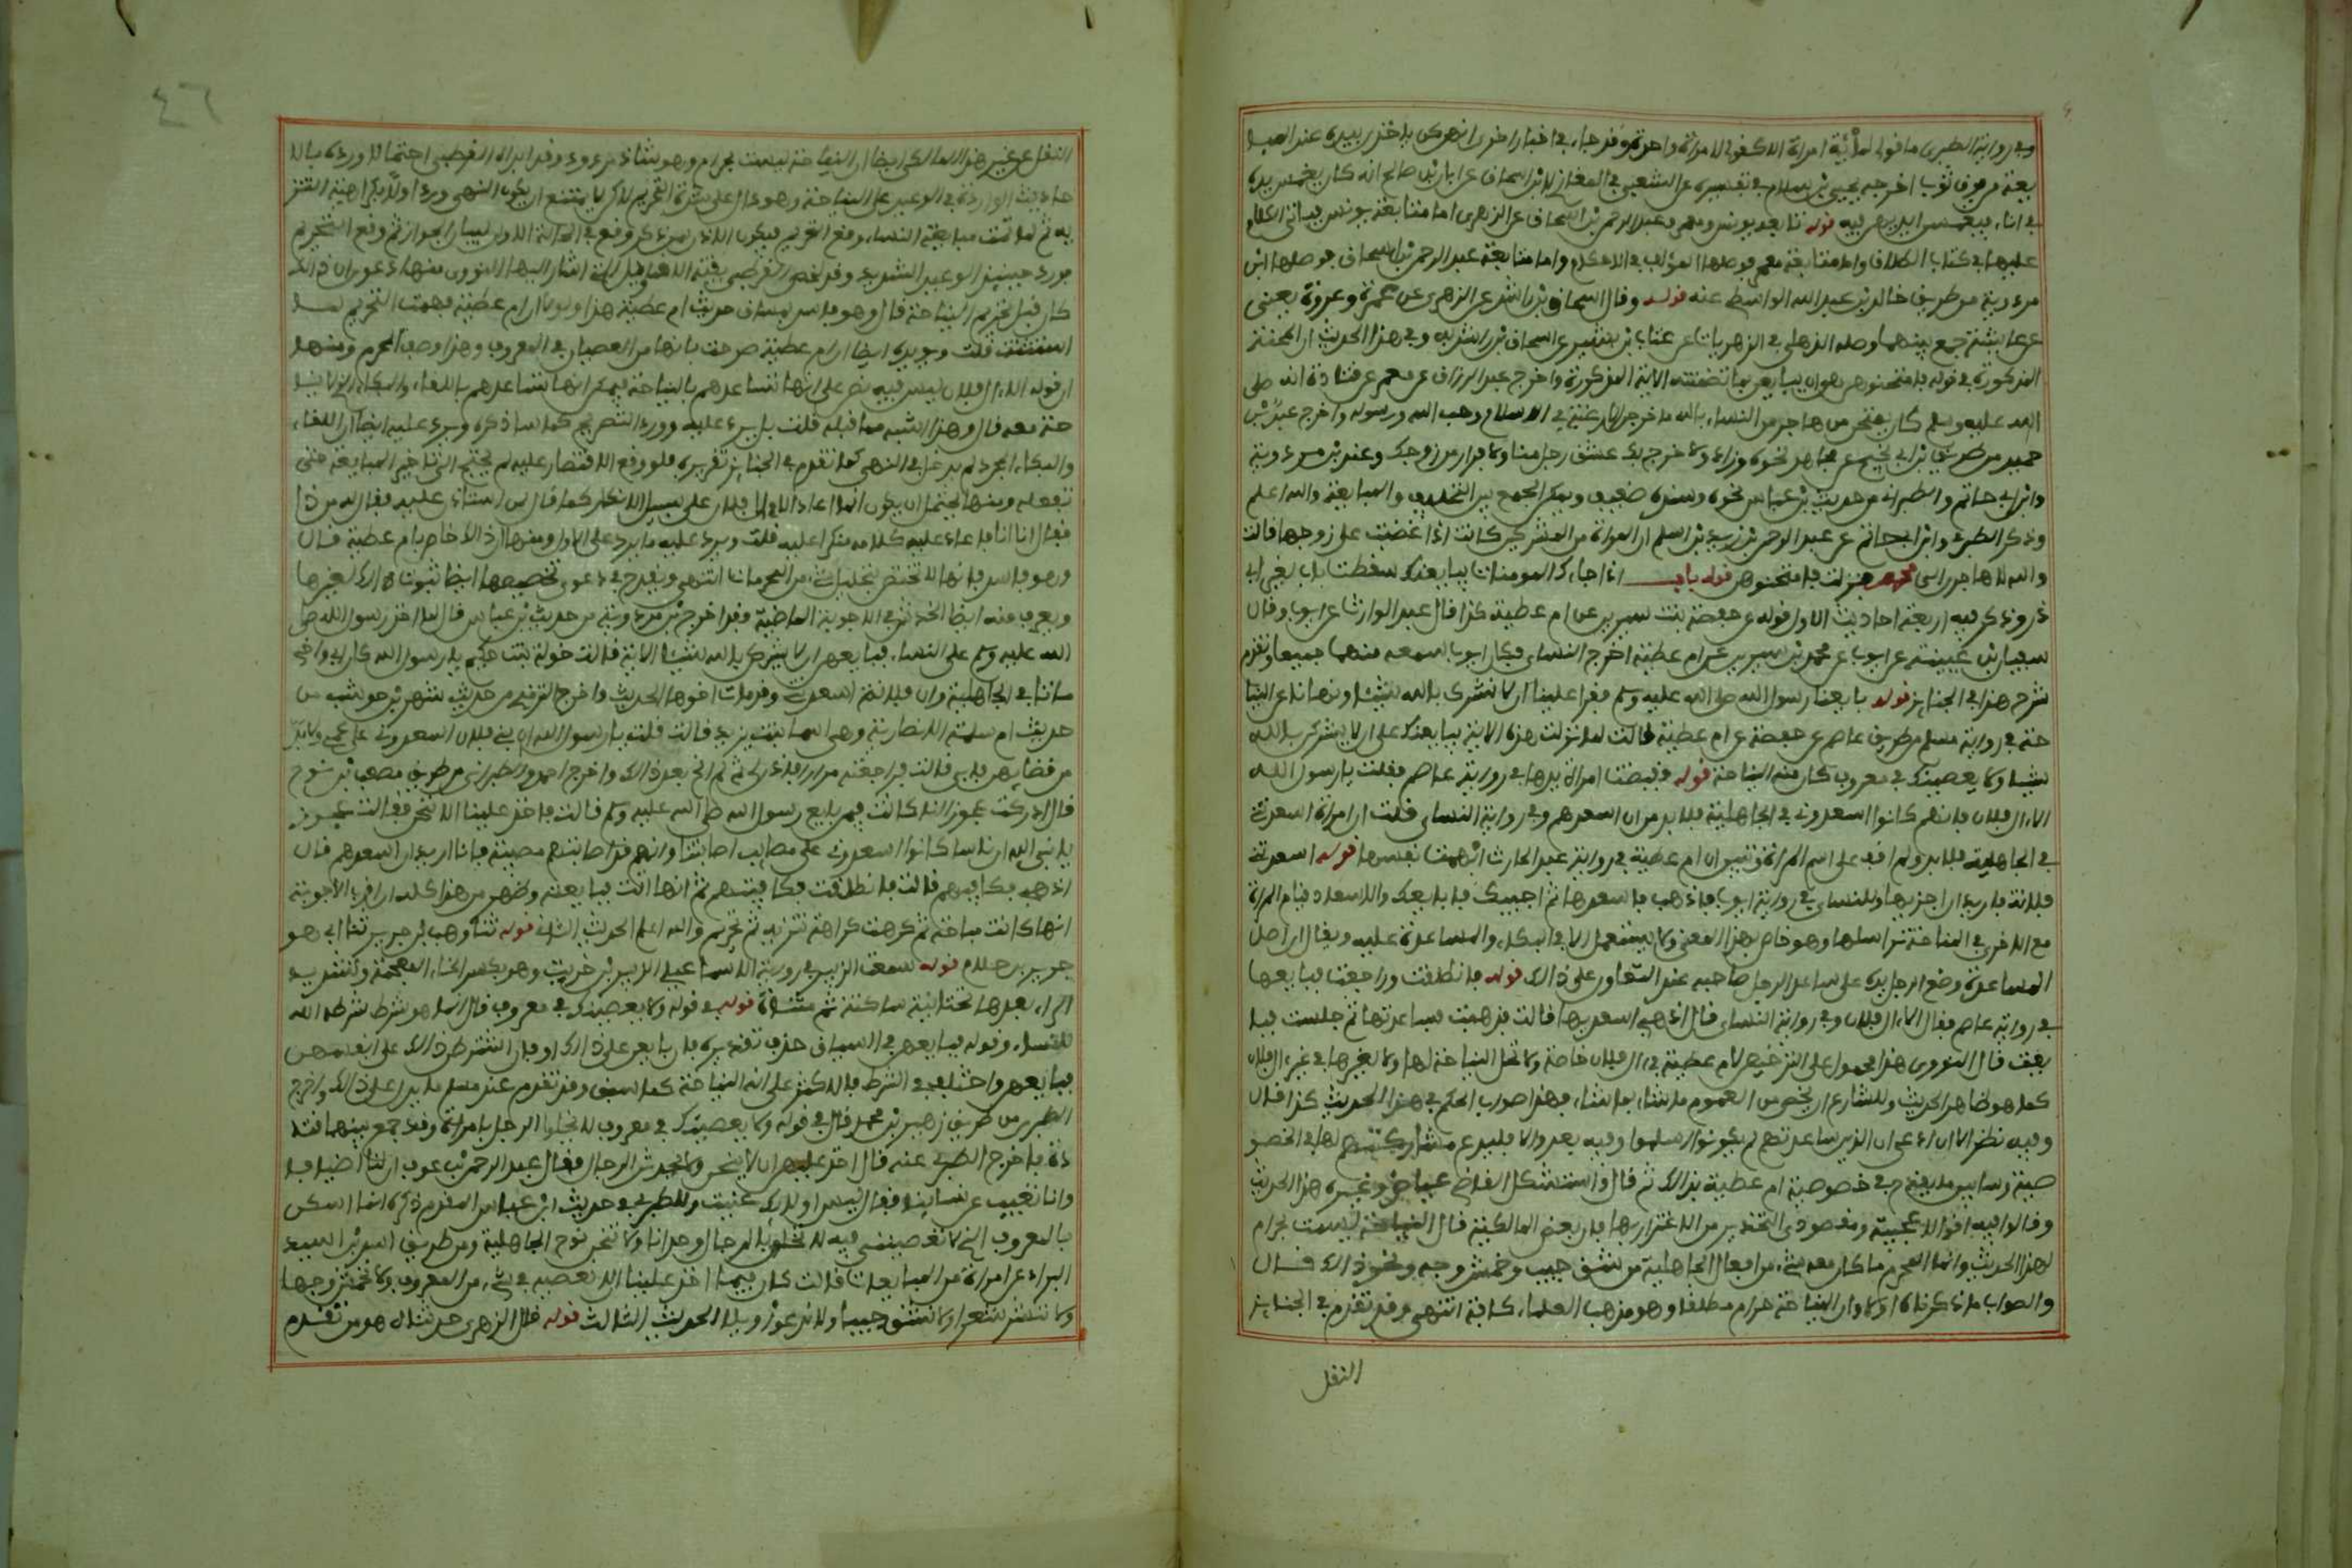 وفي رواية الطبري ما قولي لمائة امراة الا كقولي لامراة واحدة وقد جاء في اخبار اخرى انهن كن ياخذن بيده عند المبا
يعة من فوق ثوب اخرجه يحيى بن سلام في تفسيره عن الشعبي وفي المغازي لابن اسحاق عن ابان بن صالح انه كان يغمس يده
في اناء فيغمسن ايديهن فيه قوله تابعه يونس ومعمر وعبد الرحمن بن اسحاق عن الزهري اما متابعة يونس فياتي الكلام
عليها في كتاب الطلاق واما متابعة معمر فوصلها المؤلف في الاحكام واما متابعة عبد الرحمن بن اسحاق فوصلها ابن
مردويه من طريق خالد بن عبد الله الواسطي عنه قوله وقال اسحاق بن راشد عن الزهري عن عمرة وعروة يعني
عن عايشة جمع بينهما وصله الذهلي في الزهريات عن عتاب بن بشير عن اسحاق بن راشد به وفي هذا الحديث ان المحنة
المذكورة في قوله فامتحنوهن هو ان يبايعن بما تضمنته الاية المذكورة واخرج عبد الرزاق عن معمر عن قتادة انه صلى
الله عليه وسلم كان يمتحن من هاجر من النساء بالله ما خرجت الا رغبة في الاسلام وحب الله ورسوله واخرج عبد بن
حميد من طريق بن ابي نجيح عن مجاهد نحوه وزاد ولا خرج بك عشق رجل منا ولا فرار من زوجك وعند بن مردويه
وابن ابي حاتم والطبراني من حديث بن عباس نحوه وسنده ضعيف ويمكن الجمع بين التحليف والمبايعة والله اعلم
وذكر الطبري وابن ابي حاتم عن عبد الرحمن بن زيد بن اسلم ان المراة من المشركين كانت اذا غضبت على زوجها قالت
والله لاهاجرن الى محمد فنزلت فامتحنوهن قوله باب اذا جاءك المومنات يبايعنك سقطت باب لغير ابي
ذر وذكر فيه اربعة احاديث الاول قوله عن حفصة بنت سيرين عن ام عطية كذا قال عبد الوارث عن ايوب وقال
سفيان بن عيينة عن ايوب عن محمد بن سيرين عن ام عطية اخرجه النساءي فكان ايوب سمعه منهما جميعا وتقدم
شرح هذا في الجنايز قوله بايعنا رسول الله صلى الله عليه وسلم فقرا علينا ان لا نشرك بالله شيئا ونهانا عن النيا
حة في رواية مسلم من طريق عاصم عن حفصة عن ام عطية قالت لما نزلت هذه الاية يبايعنك على ان لا يشركن بالله
شيئا ولا يعصينك في معروف كان منه النياحة قوله فقبضت امراة يدها في رواية عاصم فقلت يا رسول الله
الا ال فلان فانهم كانوا اسعدوني في الجاهلية فلا بد من ان اسعدهم وفي رواية النساءي قلت ان امراة اسعدتني
في الجاهلية فلا بد ولم اقف على اسم المراة وتبين ان ام عطية في رواية عبد الوارث ابهمت نفسها قوله اسعدتني
فلانة فاريد ان اجزيها وللنساءي في رواية ايوب فاذهب فاسعدها ثم اجيئك فابايعك والاسعاد قيام المراة
مع الاخرى في النياحة تراسلها وهو خاص بهذا المعنى ولا يستعمل الا في البكاء والمساعدة عليه ويقال ان اصل
المساعدة وضع الرجل يده على ساعد الرجل صاحبه عند التعاون على ذالك قوله فانطلقت ورجعت فبايعها
في رواية عاصم فقال الا ال فلان وفي رواية النساءي قال اذهبي اسعديها قالت فذهبت فساعدتها ثم جئت فبا
يعت قال النووي هذا محمول على الترخيص لام عطية في ال فلان خاصة ولا تحل النياحة لها ولا لغيرها في غير ال فلان
كما هو ظاهر الحديث وللشارع ان يخص من العموم ما شاء بما شاء فهذا صواب الحكم في هذا الحديث كذا قال
وفيه نظر الا ان ادعى ان الذين ساعدتهم لم يكونوا اسلموا وفيه بعد والا فليدع مشاركتهم لها في الخصو
صية وسابين ما يقدح في خصوصية ام عطية بذالك ثم قال واستشكل القاضي عياض وغيره هذا الحديث
وقالوا فيه اقوالا عجيبة ومقصودي التحذير من الاغترار بها فان بعض المالكية قال النياحة ليست بحرام
لهذا الحديث وانما المحرم ما كان معه شيء من افعال الجاهلية من شق جيب وخمش وجه ونحو ذالك قال
والصواب ما ذكرناه اولا وان النياحة حرام مطلقا وهو مذهب العلماء كافة انتهى وقد تقدم في الجنايز
النقل
٤٦
النقل عن غير هذا المالكي ايضا ان النياحة ليست بحرام وهو شاذ مردود وقد ابداه القرطبي احتمالا ورده بالا
حاديث الواردة في الوعيد على النياحة وهو دال على شدة التحريم لاكن لا يمتنع ان يكون النهي ورد اولا بكراهية التنز
يه ثم لما تمت مبايعة النساء وقع التحريم فيكون الاذن لمن ذكر وقع في الحالة الاولى لبيان الجواز ثم وقع التحريم
فورد حينيذ الوعيد الشديد وقد لخص القرطبي بقية الاقاويل التي اشار اليها النووي منها دعوى ان ذالك
كان قبل تحريم النياحة قال وهو فاسد لمساق حديث ام عطية هذا ولولا ان ام عطية فهمت التحريم لما
استثنت قلت ويويده ايضا ان ام عطية صرحت بانها من العصيان في المعروف وهذا وصف المحرم ومنها
ان قوله الا ال فلان ليس فيه نص على انها تساعدهم بالنياحة فيمكن انها تساعدهم باللقاء والبكاء الذي لا نيا
حة معه قال وهذا اشبه مما قبله قلت بل يرد عليه ورود التصريح كما ساذكره ويرد عليه ايضا ان اللقاء
والبكاء المجرد لم يدخل في النهي كما تقدم في الجنايز تقريره فلو وقع الاقتصار عليه لم يحتج الى تاخير المبايعة حتى
تفعله ومنها يحتمل ان يكون اعاد الا ال فلان على سبيل الانكار كما قال لمن استاذن عليه فقال له من ذا
فقال انا انا فاعاد عليه كلامه منكرا عليه قلت ويرد عليه ما يرد على الاول ومنها ان ذالك خاص بام عطية قال
وهو فاسد فانها لا تختص بتحليل شيء من المحرمات انتهى ويقدح في دعوى تخصيصها ايضا ثبوت ذالك لغيرها
ويعرف منه ايضا الخدش في الاجوبة الماضية فقد اخرج بن مردويه من حديث بن عباس قال لما اخذ رسول الله صلى
الله عليه وسلم على النساء فبايعهن ان لا يشركن بالله شيئا الاية قالت خولة بنت حكيم يا رسول الله كان ابي واخي
ماتا في الجاهلية وان فلانة اسعدتني وقد مات اخوها الحديث واخرج الترمذي من حديث شهر بن حوشب من
حديث ام سلمة الانصارية وهي اسما بنت يزيد قالت قلت يا رسول الله ان بني فلان اسعدوني على عمي ولا بد
من قضايهن فابى قالت فراجعته مرارا فاذن لي ثم لم انح بعد ذالك واخرج احمد والطبراني من طريق مصعب بن نوح
قال ادركت عجوزا لنا كانت فيمن بايع رسول الله صلى الله عليه وسلم قالت فاخذ علينا ان لا ننحن فقالت عجوز
يا نبي الله ان ناسا كانوا اسعدوني على مصايب اصابتنا وانهم قد اصابتهم مصيبة فانا اريد ان اسعدهم قال
اذهبي فكافيهم قالت فانطلقت فكافيتهم ثم انها اتت فبايعته وظهر من هذا كله ان اقرب الاجوبة
انها كانت مباحة ثم كرهت كراهة تنزيه ثم تحريم والله اعلم الحديث الثاني قوله ثنا وهب بن جرير ثنا ابي هو
جرير بن حازم قوله سمعت الزبير في رواية الاسماعيلي الزبير بن خريت وهو بكسر الخاء المعجمة وتشديد
الراء بعدها تحتانية ساكنة ثم مثناة قوله في قوله ولا يعصينك في معروف قال انما هو شرط شرطه الله
للنساء وقوله فبايعهن في السياق حذف تقديره فان بايعن على ذالك او فان اشترطن ذالك على انفسهن
فبايعهن واختلف في الشرط فالاكثر على انه النياحة كما سبق وقد تقدم عند مسلم ما يدل على ذالك واخرج
الطبري من طريق زهير بن محمد قال في قوله ولا يعصينك في معروف لا يخلوا الرجل بامراة وقد جمع بينهما قتا
دة فاخرج الطبري عنه قال اخذ عليهن ان لا ينحن ولا يحدثن الرجال فقال عبد الرحمن بن عوف ان لنا اضيافا
وانا نغيب عن نساينا فقال ليس اوليك عنيت وللطبري في حديث ابن عباس المقدم ذكره انما
بالمعروف الذي لا تعصينني فيه لا تخلون بالرجال وحدانا ولا تنحن نوح الجاهلية ومن طريق اسيد بن ابي اسيد
البراد عن امراة من المبايعات قالت كان فيما اخذ علينا ان لا نعصيه في شيء من المعروف ولا نخمش وجها
ولا ننشر شعرا ولا نشق جيبا ولا ندعو ويلا الحديث الثالث قوله قال الزهري حدثناه هو من تقدم